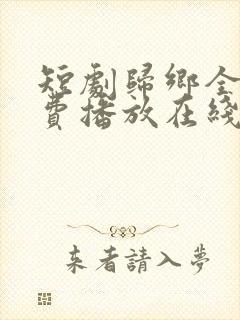 短劇歸鄉全
費播放在綫
来者請入夢